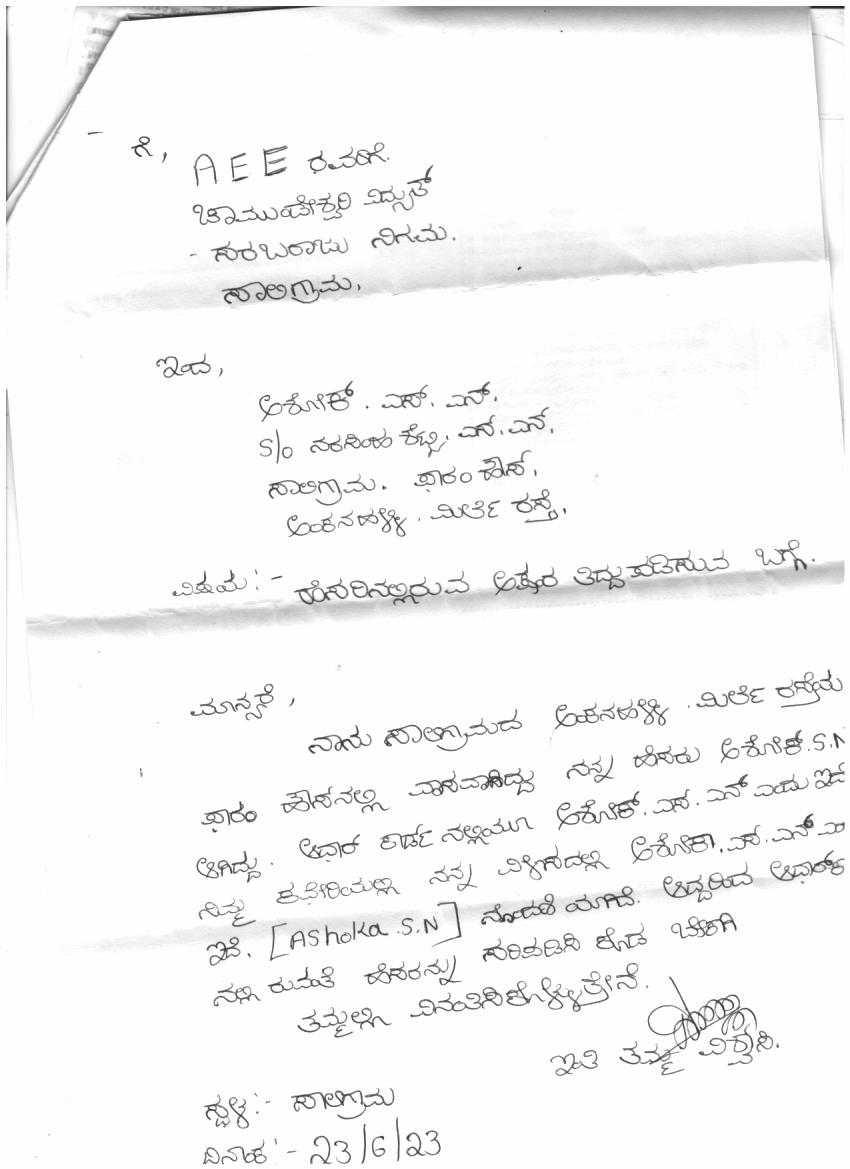 ಗೆ,
AEE ರವರಿಗೆ.
ಚಾಮುಂಡೇಶ್ವರಿ ವಿದ್ಯುತ್
- ಸರಬರಾಜು ನಿಗಮ.
ಸಾಲಿಗ್ರಾಮ,
ಇಂದ,
ಅಶೋಕ್. ಎಸ್. ಎನ್.
S/o ನರಸಿಂಹ ಶೆಟ್ಟಿ. ಎಸ್. ಎನ್.
ಸಾಲಿಗ್ರಾಮ. ಫಾರಂ ಹೌಸ್,
ಅಂಕನಹಳ್ಳಿ. ಮಿರ್ಲೆ ರಸ್ತೆ,
ವಿಷಯ:- ಹೆಸರಿನಲ್ಲಿರುವ ಅಕ್ಷರ ತಿದ್ದುಪಡಿಸುವ ಬಗ್ಗೆ.
ಮಾನ್ಯರೆ,
ನಾನು ಸಾಲಿಗ್ರಾಮದ ಅಂಕನಹಳ್ಳಿ. ಮಿರ್ಲೆ ರಸ್ತೆಯ
ಫಾರಂ ಹೌಸ್‌ನಲ್ಲಿ ವಾಸವಾಗಿದ್ದು ನನ್ನ ಹೆಸರು ಅಶೋಕ್.S.N
ಆಗಿದ್ದು. ಆಧಾರ್ ಕಾರ್ಡ್‌ನಲ್ಲಿಯೂ ಅಶೋಕ್. ಎಸ್. ಎನ್ ಎಂದು ಇದೆ
ನಿಮ್ಮ ಕಛೇರಿಯಲ್ಲಿ ನನ್ನ ವಿಳಾಸದಲ್ಲಿ ಅಶೋಕಾ.ಎಸ್.ಎನ್
ಇದೆ. [AShoka.S.N] ನೊಂದಣಿಯಾಗಿದೆ. ಆದ್ದರಿಂದ
ನಲ್ಲಿರುವಂತೆ ಹೆಸರನ್ನು ಸರಿಪಡಿಸಿ ಕೊಡ ಬೇಕಾಗಿ
ತಮ್ಮಲ್ಲಿ ವಿನಂತಿಸಿಕೊಳ್ಳುತ್ತೇನೆ.
ಇತಿ ತಮ್ಮ ವಿಶ್ವಾಸಿ.
ಸ್ಥಳ:- ಸಾಲಿಗ್ರಾಮ
ದಿನಾಂಕ:- 23/6/23